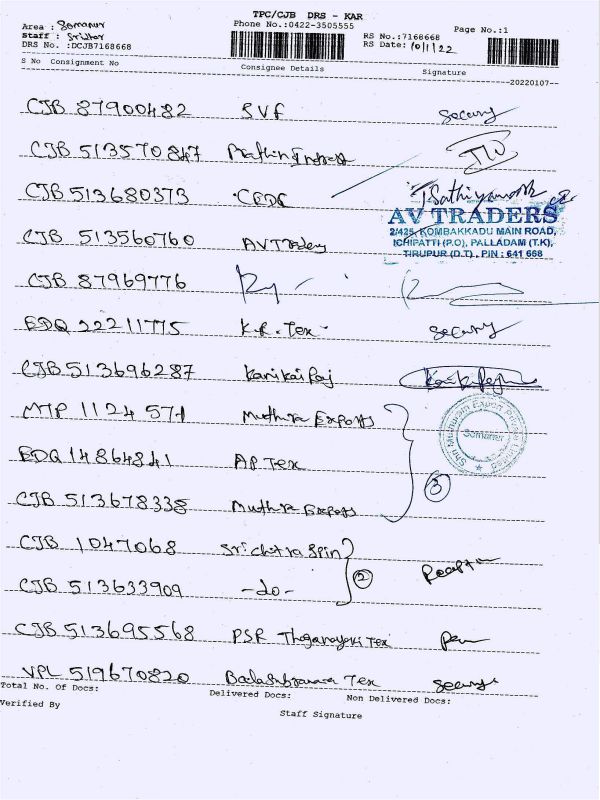 TPC/CJB DRS - KAR
Area : Somanur
Phone No.:0422-3505555
Page No.:1
Staff : Sridhar
RS No.:7168668
DRS No. :DCJB7168668
RS Date: 10/1/22
S No Consignment No
Consignee Details
Signature
20220107
CJB 87900482 SVF Security
CJB 513570847
CJB 513680373 CEDC
AV TRADERS
2/425, KOMBAKKADU MAIN ROAD,
ICHIPATTI (P.O), PALLADAM (T.K),
TIRUPUR (D.T), PIN : 641 668
CJB 513560760 AV Traders
CJB 87969776
EDQ 22211775 K.R. Tex Security
CJB 513696287
MTP 1124571 Muthra Exports
Somanur
EDQ 14864841 AP Tex
3
CJB 513678338 Muthra Exports
CJB 1047068 Srichitra Spin
2
CJB 513633909 -do-
CJB 513695568 PSR Tex
VPL 519670820 Tex Security
Total No. Of Docs:
Delivered Docs:
Non Delivered Docs:
Verified By
Staff Signature